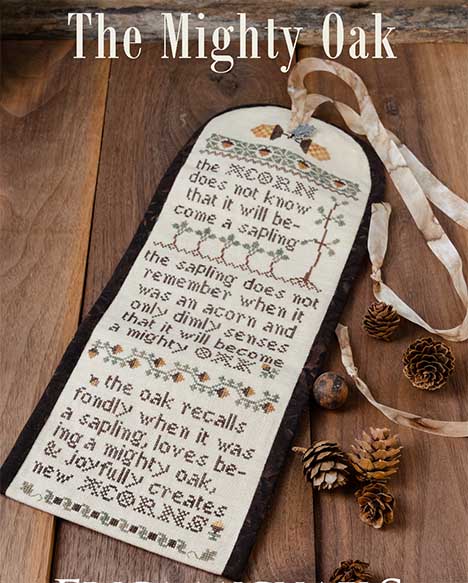 The Mighty Oak
the ACORN
does not know
that it will be-
come a sapling
the sapling does not
remember when it
was an acorn and
only dimly senses
that it will become
a mighty OAK
the oak recalls
fondly when it was
a sapling loves be-
ing a mighty oak,
& joyfully creates
new ACORNS